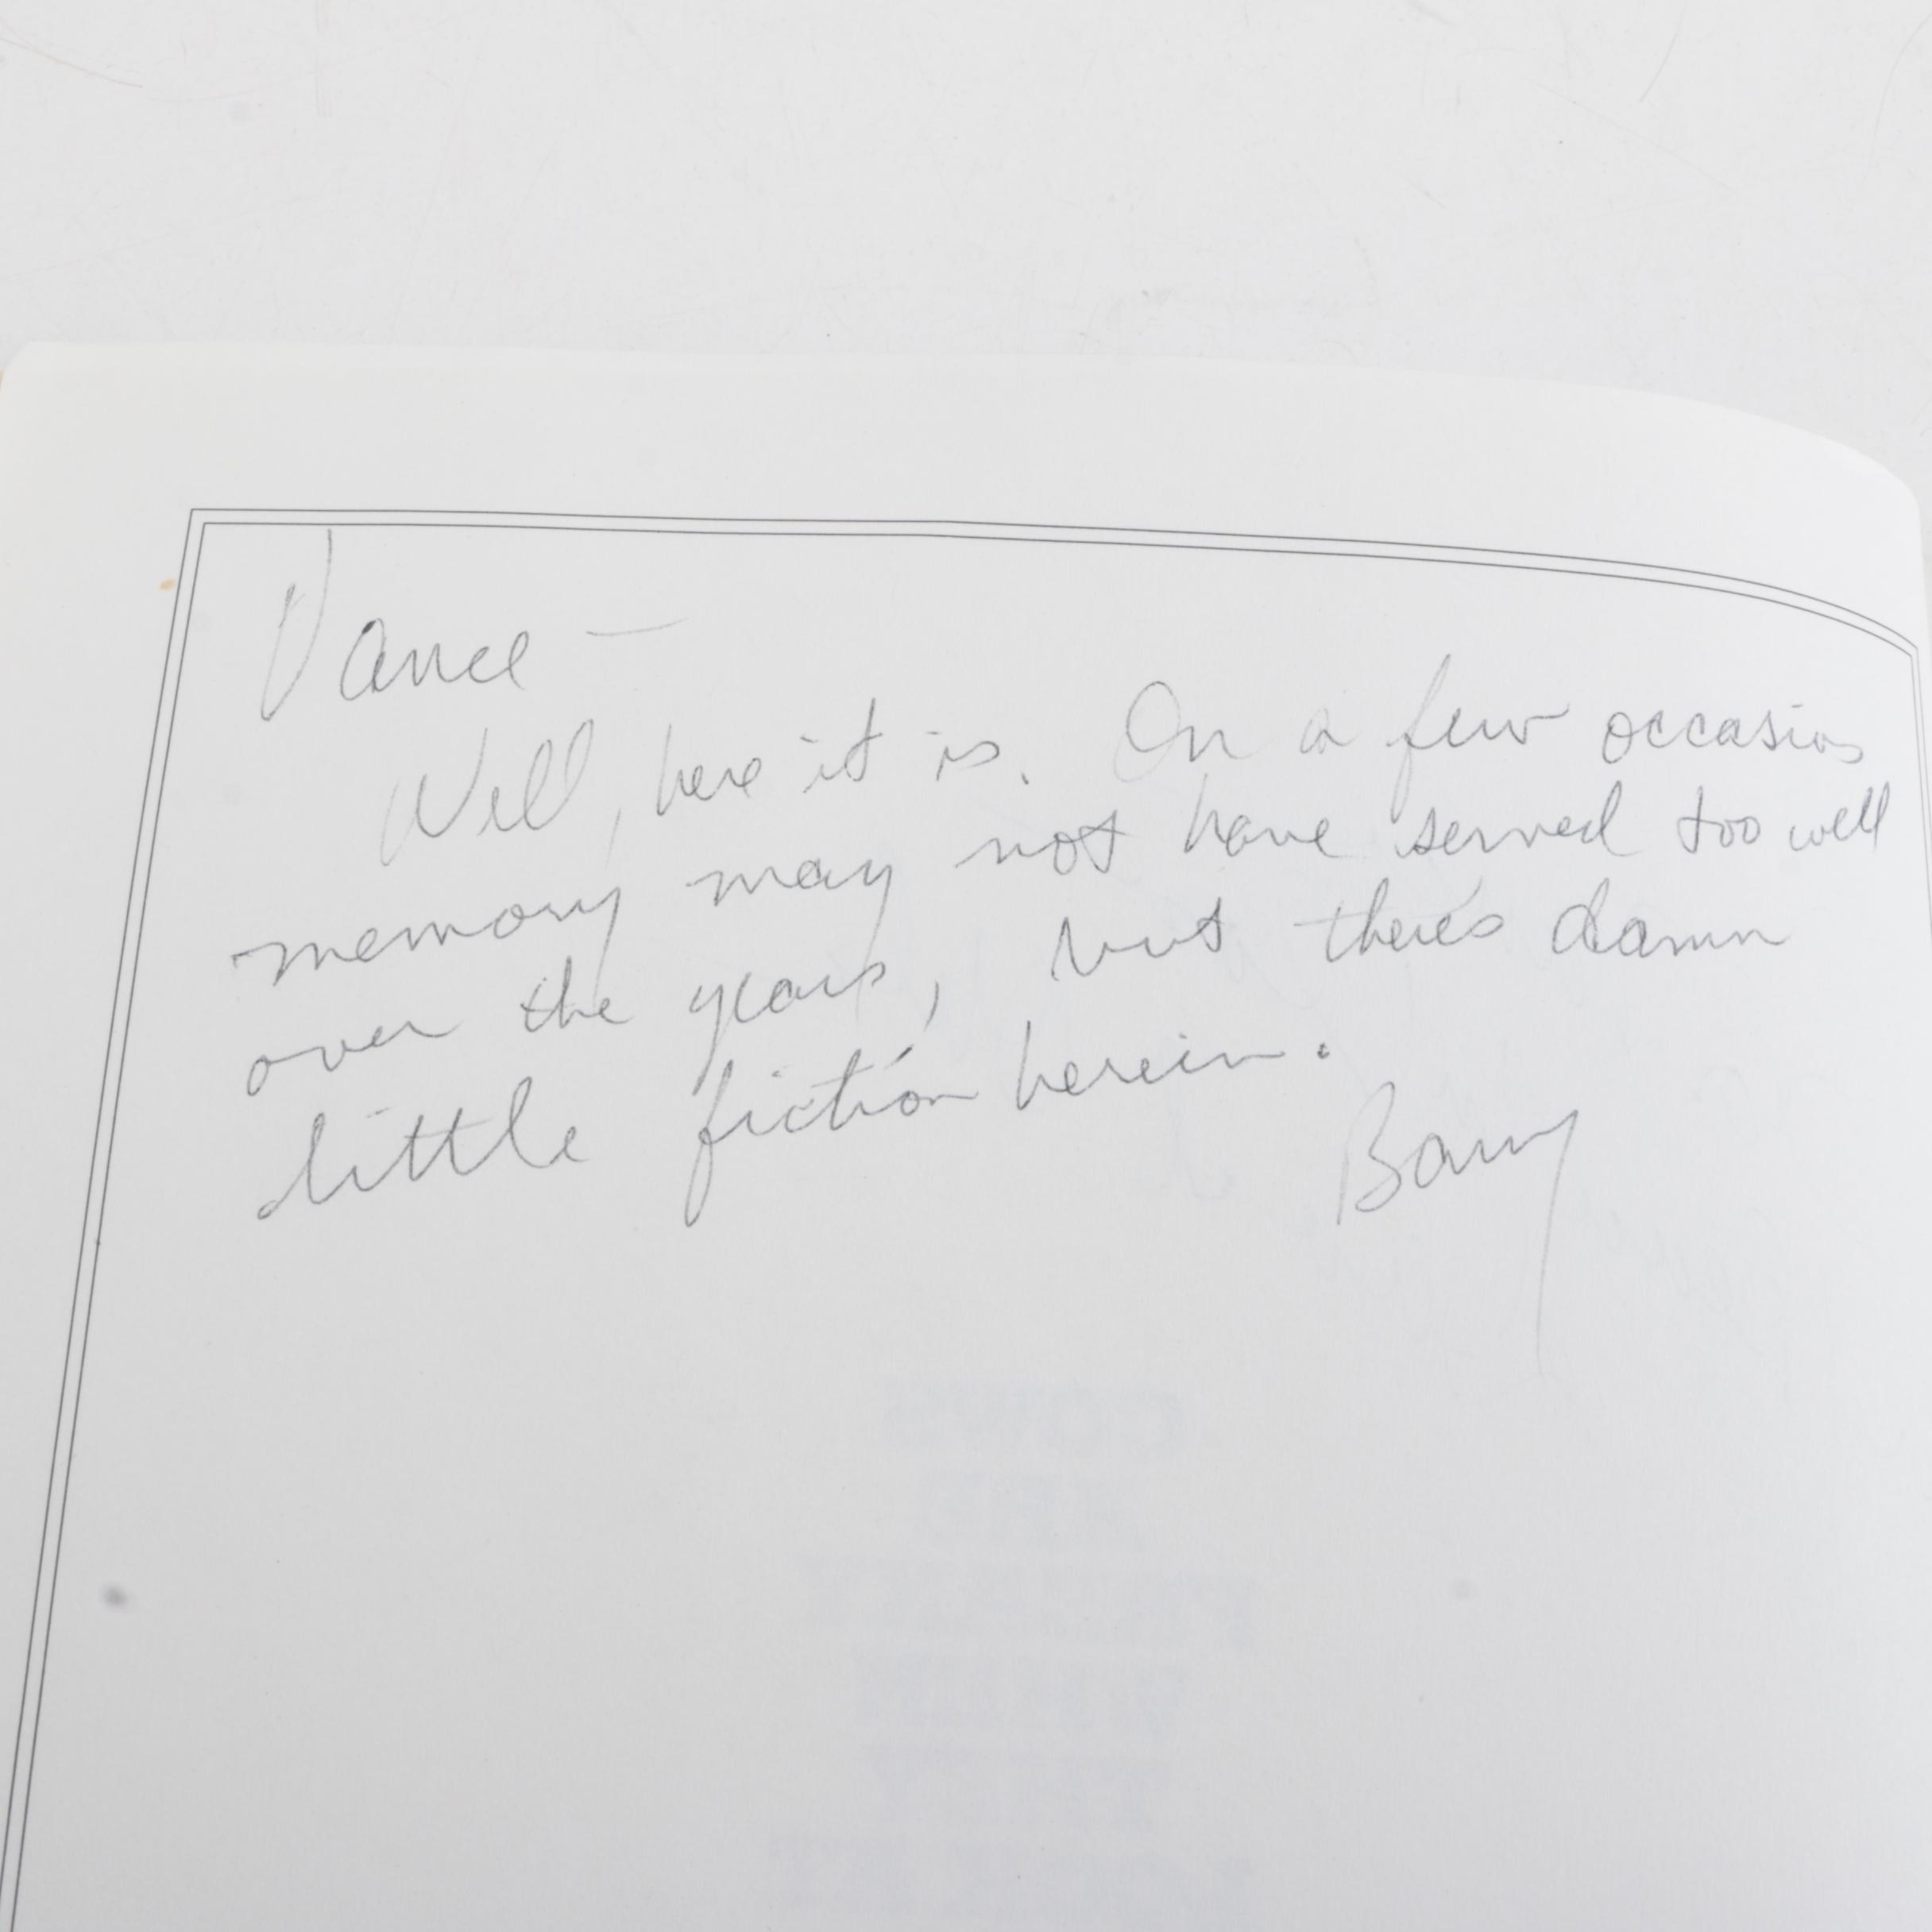 Vance —
Well, here it is. On a few occasions
memory may not have served too well
over the years, but there's damn
little fiction herein.
Barry
COWS
ARE
FUNNY
WHEN
THEY